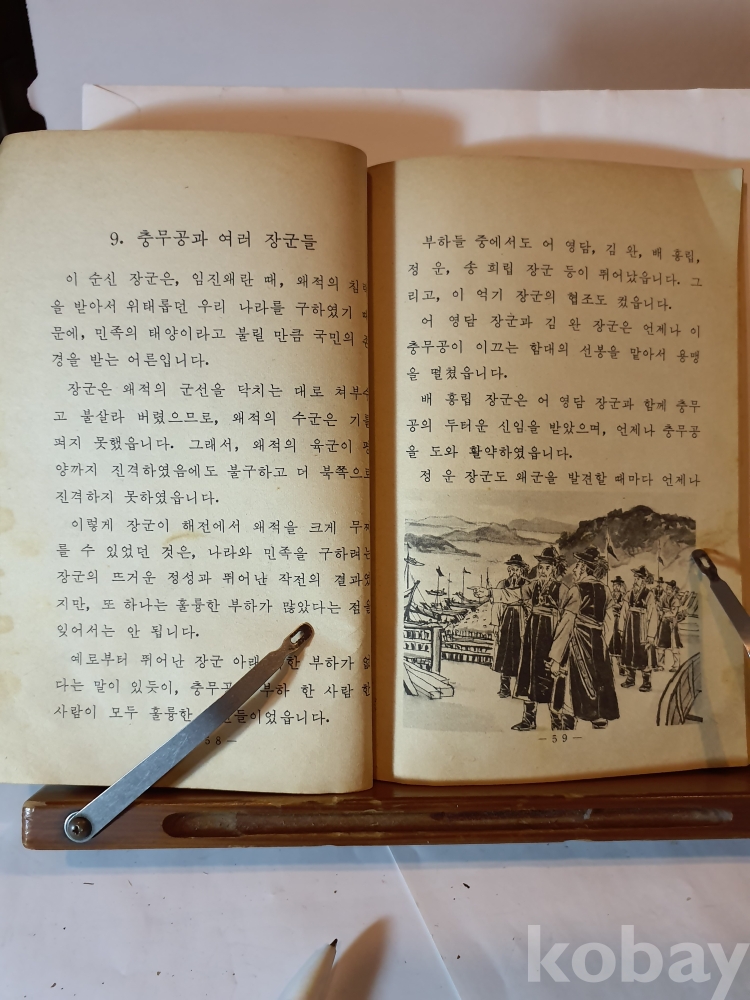 9. 충무공과 여러 장군들
이 순신 장군은, 임진왜란 때, 왜적의
을 받아서 위태롭던 우리 나라를 구하였기
문에, 민족의 태양이라고 불릴 만큼 국민의
경을 받는 어른입니다.
장군은 왜적의 군선을 닥치는 대로
고 불살라 버렸으므로, 왜적의 수군은
펴지 못했읍니다. 그래서, 왜적의 육군이
양까지 진격하였음에도 불구하고 더 북쪽으로
진격하지 못하였읍니다.
이렇게 장군이 해전에서 왜적을 크게
를 수 있었던 것은, 나라와 민족을 구하려는
장군의 뜨거운 정성과 뛰어난 작전의
지만, 또 하나는 훌륭한 부하가 많았다는 점을
잊어서는 안 됩니다.
예로부터 뛰어난 장군 부하가
다는 말이 있듯이, 부하 한 사람
사람이 모두 훌륭한
부하들 중에서도 어 영담, 김 완, 배 흥립,
정 운, 송 희립 장군 등이 뛰어났읍니다. 그
리고, 이 억기 장군의 협조도 컸읍니다.
어 영담 장군과 김 완 장군은 언제나 이
충무공이 이끄는 함대의 선봉을 맡아서 용맹
을 떨쳤읍니다.
배 흥립 장군은 어 영담 장군과 함께 충무
공의 두터운 신임을 받았으며, 언제나 충무공
을 도와 활약하였읍니다.
정 운 장군도 왜군을 발견할 때마다 언제나
— 59 —
kobay